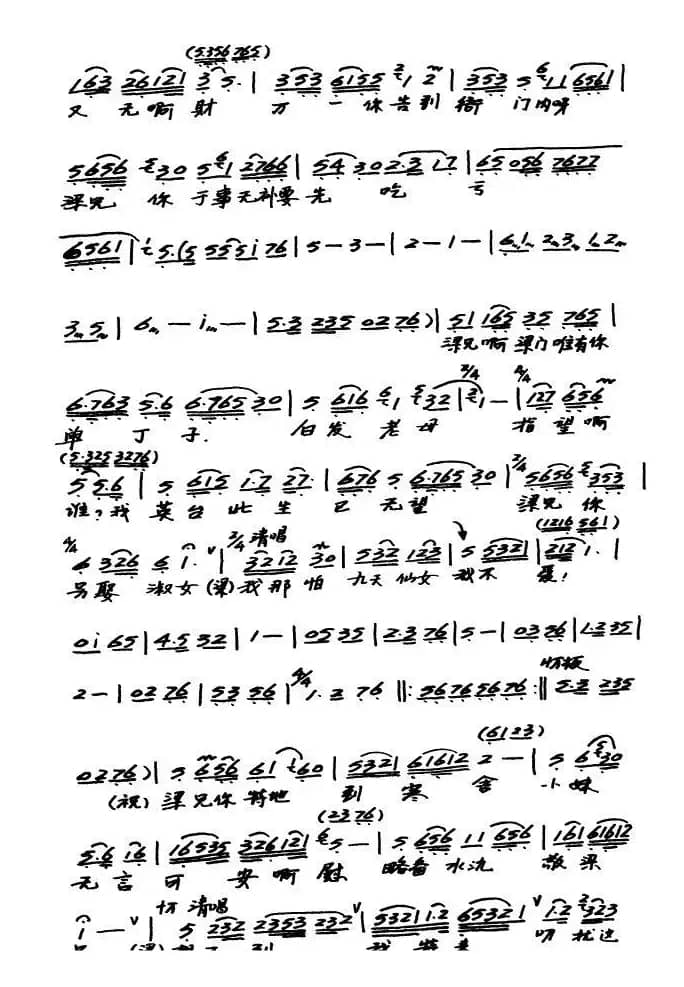 (5356 765)
163 26121 3 5. | 353 6155 1 2 | 353 5 11 6561 |
又 无啊 财 万 一 你告到 衙 门内呀
5656 30 5 1 2766 | 54 30 2.3 17 | 65 056 7677
梁兄 你 于事无补要 先 吃 亏
6561 | 5.(5 555i 76 | 5 - 3 - | 2 - 1 - | 6 1 2 3 1 2
3 5 | 6 - i - | 5.3 235 0276) | 51 165 35 765 |
梁兄啊 梁门唯有你
3/4 4/4
6.763 5.6 6.765 30 | 5 616 1 32 | 1 - | 127 656
单 丁 子. 白发 老母 指望啊
(5.325 3276)
5 5.6 | 5 615 1.7 27. | 676 5 6.765 30 | 2/4 5656 353 |
谁？我 英台 此生 已 无望 梁兄 你
4/4 3/4 清唱 (1216 561)
6 326 6 i. | 3212 30 | 532 123 | 5 5321 | 212 1. |
另娶 淑女 (梁)我那 怕 九天 仙女 我不 爱！
0i 65 | 4.5 32 | 1 - | 05 35 | 2.3 76 | 5 - | 03 56 | 1.235 |
2 - | 02 76 | 53 56 | 4/4 1. 2 76 ‖: 56765676 :‖ 5.3 235
(6123)
0276) | 5 656 61 60 | 5321 61612 2 - | 5 6 30
(祝) 梁兄你 特地 到 寒 舍 小妹
(2376)
5.6 16 | 16535 326121 5 - | 5 656 11 656 | 161 61612
无言 可 安啊 慰 略备 水 敬梁
清唱
i - | 5 232 2353 232 | 5321 1.2 65321 1.2 323
叨扰这